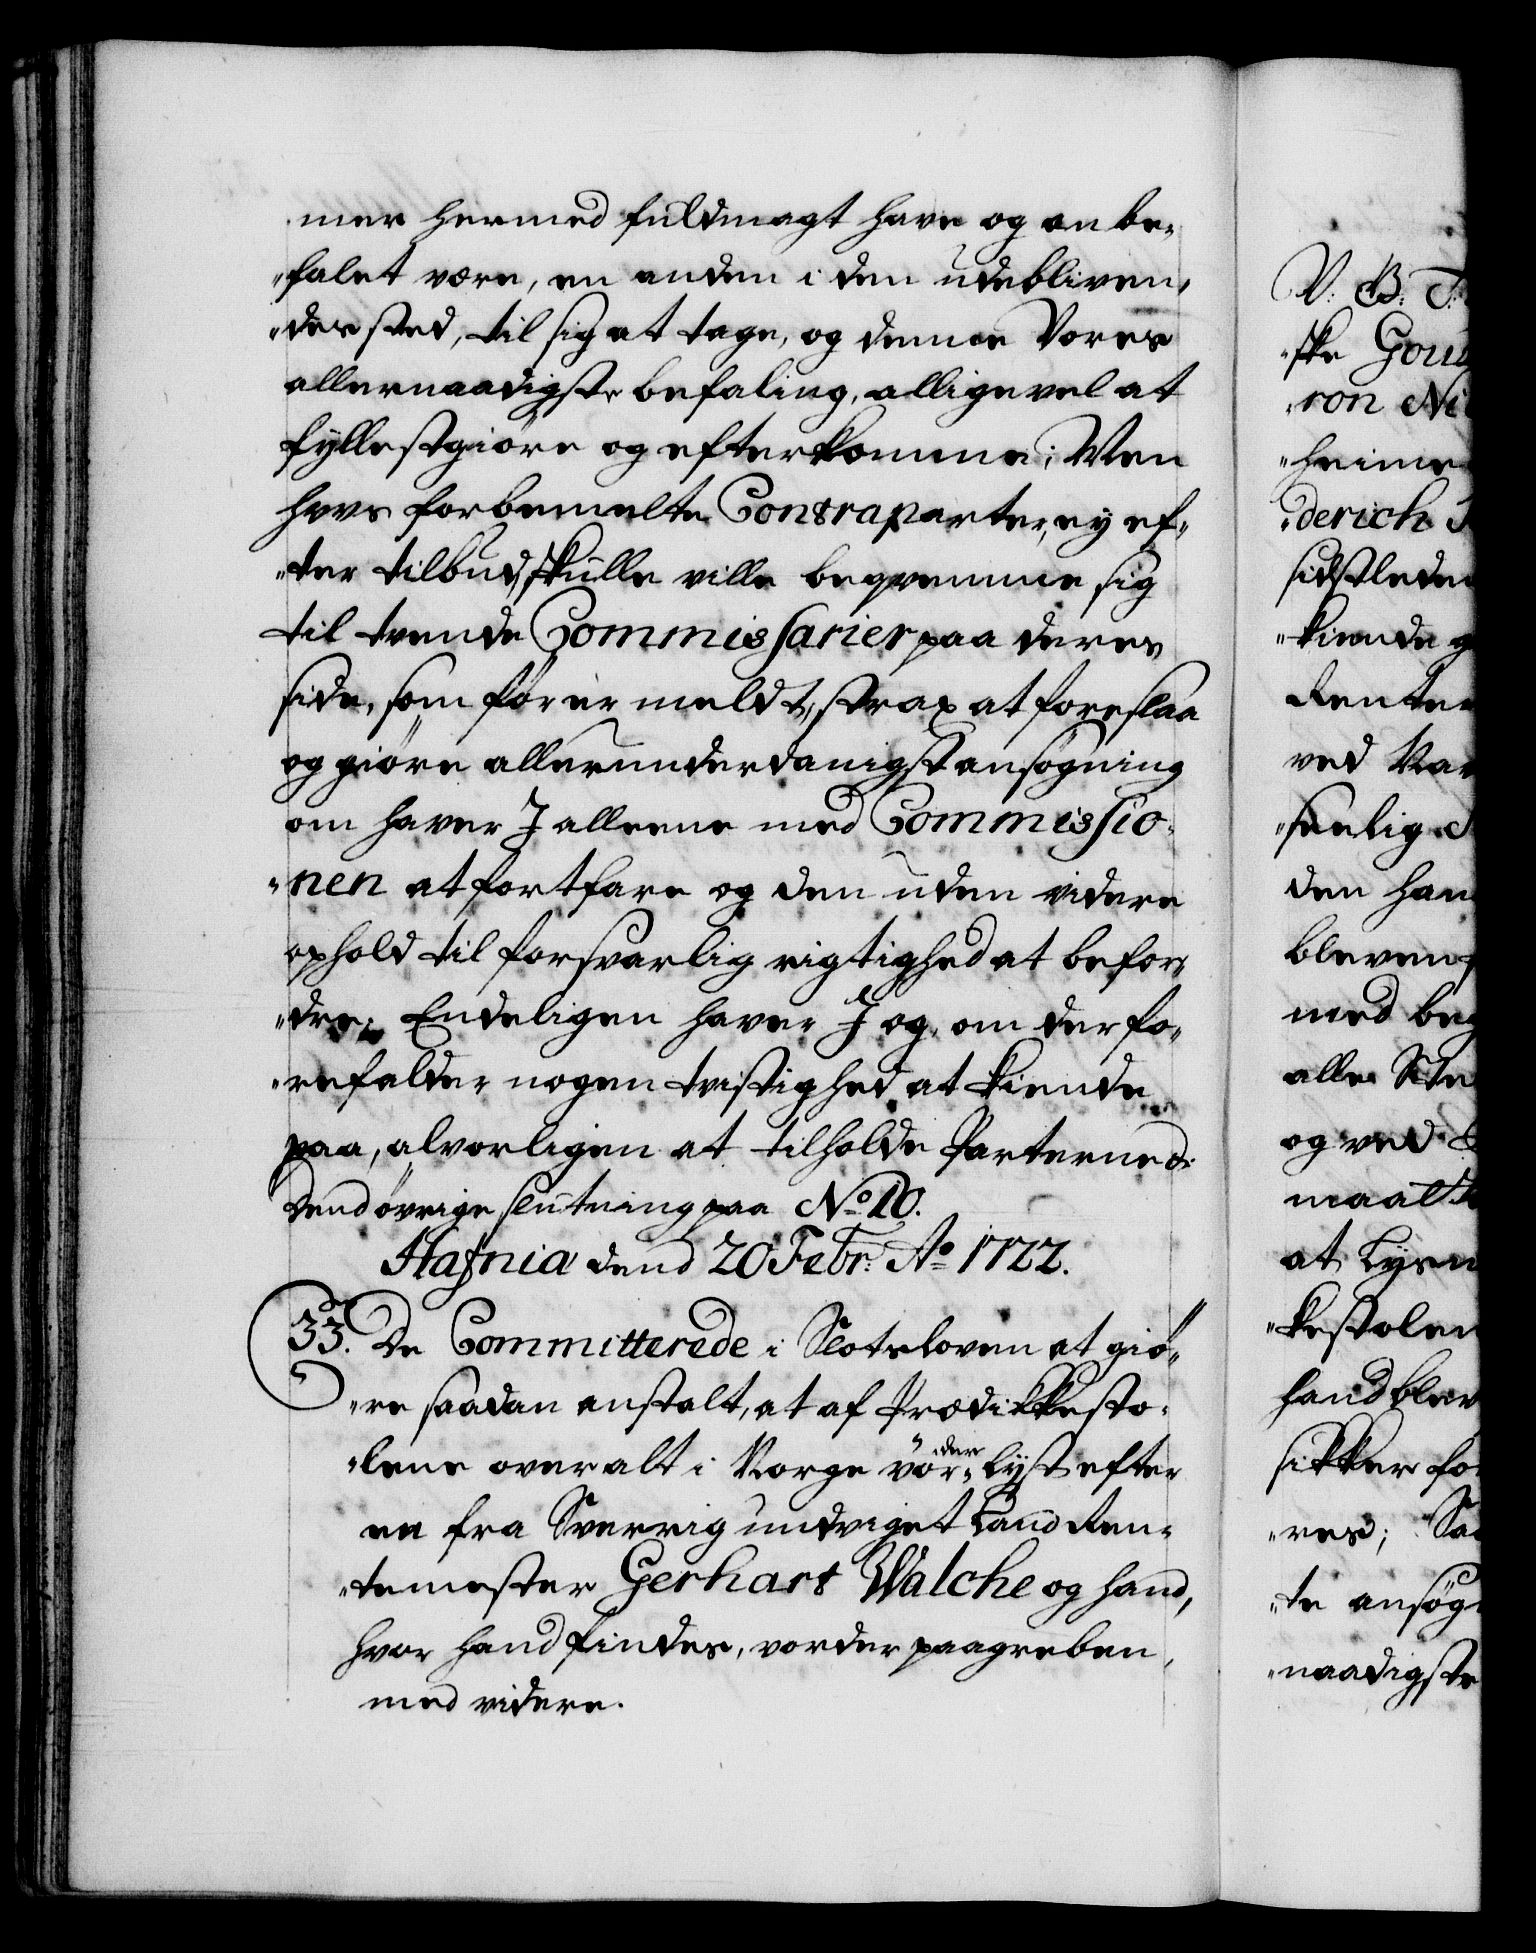 mer hermed fuldmagt have og an be-
"falet være, en anden i den udebliven-
"des sted, til sig at tage, og denne Vores
allernaadigste befaling, alligevel at
fyllestgiöre og efterkomme; Men
hvis forbemelte Contraparter, ey ef-
"ter tilbud, skulle ville beqvemme sig
til tvende Commissarier paa deres
side, som för er meldt, strax at foreslaa
og giöre allerunderdanigst ansögning
om haver I alleene med Commissio-
"nen at fortfare og den uden videre
ophold til forsvarlig rigtighed at befor-
"dre; Endeligen haver I og, om der fo-
"refalder nogen tvistighed at kiende
paa, alvorligen at tilholde Parterne &:
dend övrige slutning paa No 10.
Hafnia dend 20 Febr: Ao 1722.
33. De Committerede i Slotsloven at giö-
"re saadan anstalt, at af Prædikkesto-
"lene over alt i Norge vor-der lyst efter
en fra Sverrig undviget Land Ren-
"temester Gerhart Walche og hand,
hvor hand findes, vorder paagreben,
med videre.
V: B: T:
"ske
"ron
"heime
"derich
sidstleden
"kiende
Renter
ved
"seelig
den
bleven
med
alle
og ved
maalt
at Lysn
"kestolen
hand blev
sikker for
"res;
"te ansög
"naadigste